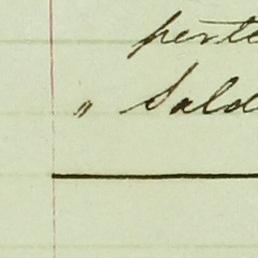 perte
" Sald